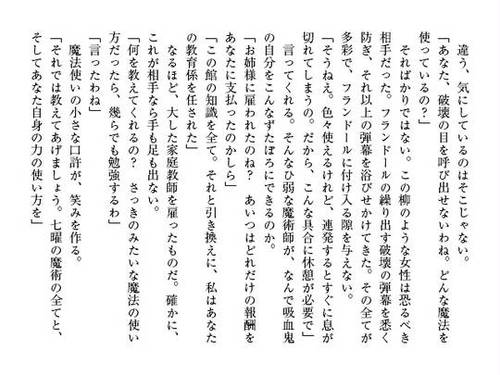 違う、気にしているのはそこじゃない。
「あなた、破壊の目を呼び出せないわね。どんな魔法を
使っているの？」
そればかりではない。この柳のような女性は恐るべき
相手だった。フランドールの繰り出す破壊の弾幕を悉く
防ぎ、それ以上の弾幕を浴びせかけてきた。その全てが
多彩で、フランドールに付け入る隙を与えない。
「そうねえ。色々使えるけれど、連発するとすぐに息が
切れてしまうの。だから、こんな具合に休憩が必要で」
言ってくれる。そんなひ弱な魔術師が、なんで吸血鬼
の自分をこんなずたぼろにできるのか。
「お姉様に雇われたのね？　あいつはどれだけの報酬を
あなたに支払ったのかしら」
「この館の知識を全て。それと引き換えに、私はあなた
の教育係を任された」
なるほど、大した家庭教師を雇ったものだ。確かに、
これが相手なら手も足も出ない。
「何を教えてくれるの？　さっきのみたいな魔法の使い
方だったら、幾らでも勉強するわ」
「言ったわね」
魔法使いの小さな口許が、笑みを作る。
「それでは教えてあげましょう。七曜の魔術の全てと、
そしてあなた自身の力の使い方を」